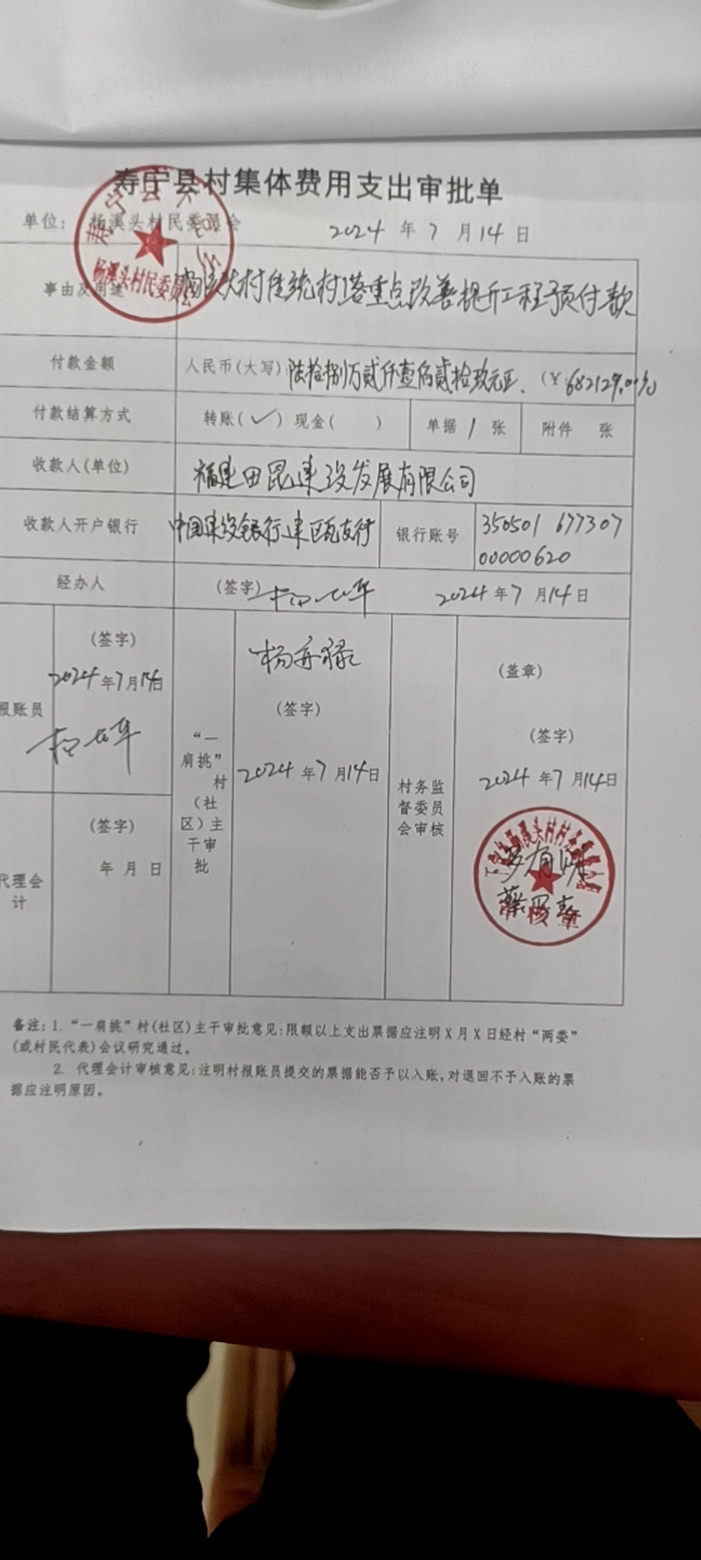 寿宁县村集体费用支出审批单
单位: 杨溪头村民委员会 2024 年 7 月 14 日
杨溪头村民委员会
事由及用途 杨溪头村传统村落重点改善提升工程预付款
付款金额 人民币(大写) 陆拾捌万贰仟壹佰贰拾玖元正. (¥:682129.00元)
付款结算方式 转账(✓) 现金( ) 单据 1 张 附件 张
收款人(单位) 福建田昆建设发展有限公司
收款人开户银行 中国建设银行建瓯支行 银行账号 350501 677307
00000620
经办人 (签字) 2024 年 7 月 14 日
报账员 (签字)
2024 年 7 月 14 日
“一肩挑”村(社区)主干审批
(签字)
2024 年 7 月 14 日
村务监督委员会审核
(盖章)
(签字)
2024 年 7 月 14 日
审核章
代理会计 (签字)
年 月 日
备注: 1. “一肩挑”村(社区)主干审批意见:限额以上支出票据应注明X月X日经村“两委”
(或村民代表)会议研究通过。
2. 代理会计审核意见:注明村报账员提交的票据能否予以入账,对退回不予入账的票
据应注明原因。